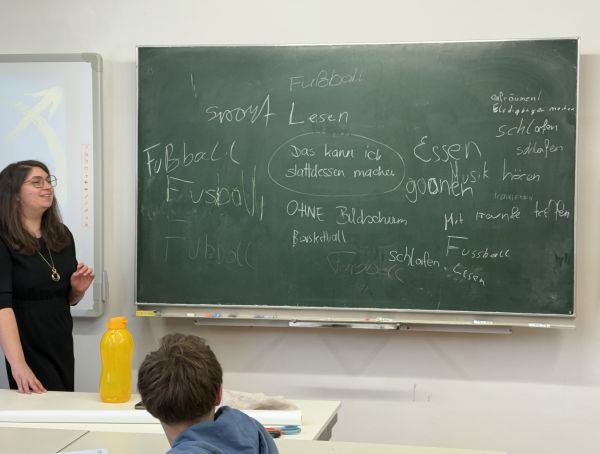 Fußball
Sport
Lesen
aufräumen/
schlafen
schlafen
Fußball
Das kann ich
stattdessen machen
Essen
goonen
Musik hören
Fusball
OHNE Bildschirm
Mit Freunde treffen
Basketball
Fussball
Fußball
Fußball
schlafen
Lesen